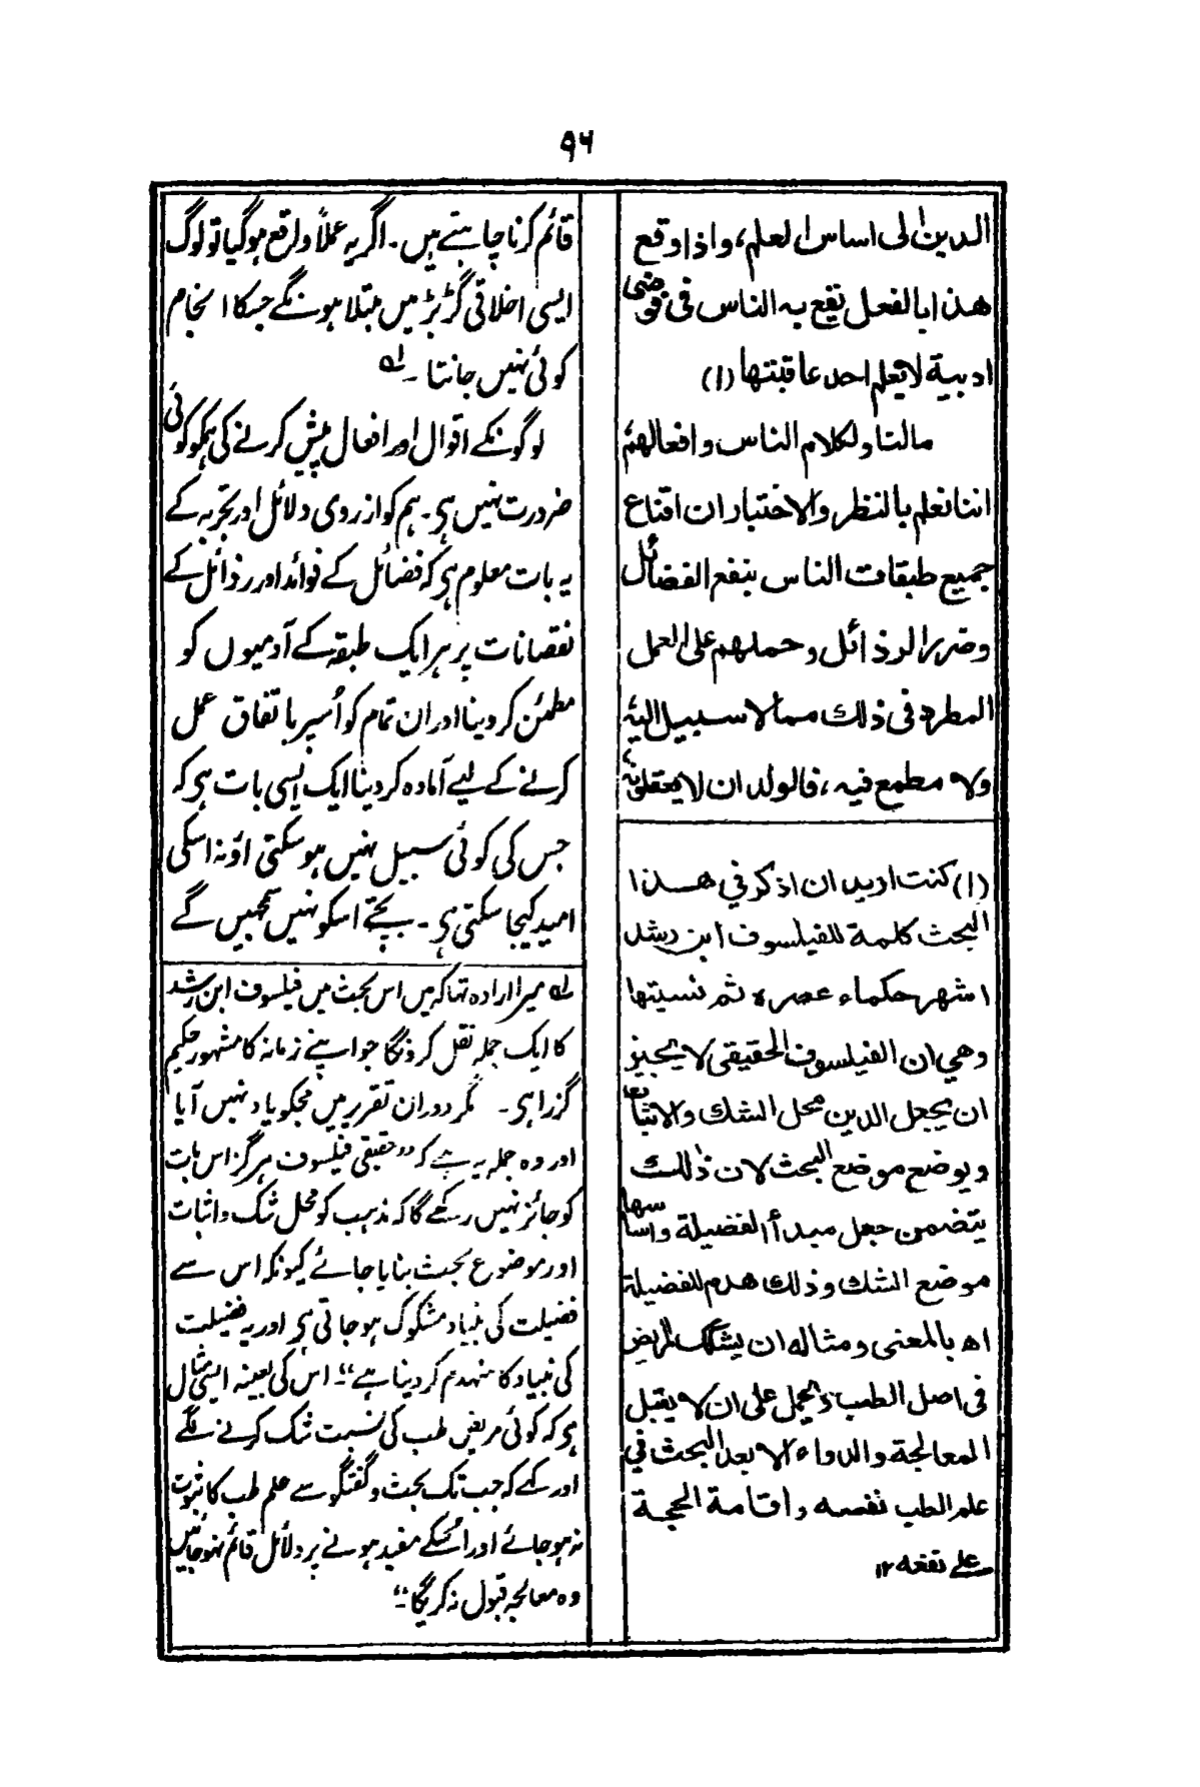 ۹۶
الدين الى اساس العلم، واذا وقع
هذا بالفعل يقع به الناس فى فوضى
ادبية لا يعلم احد عاقبتها (۱)
مالنا ولكلام الناس وافعالهم،
اننا نعلم بالنظر والاختبار ان اقناع
جميع طبقات الناس بنفع الفضائل
وضرر الرذائل وحملهم على العمل
المطرد فى ذلك مما لا سبيل اليه
ولا مطمع فيه، فالولدان لا يعقلونه،
(۱) كنت اريد ان اذكر في هذا
البحث كلمة للفيلسوف ابن رشد
اشهر حكماء عصره ثم نسيتها
وهي ان الفيلسوف الحقيقى لا يجيز
ان يجعل الدين محل الشك والاثبات
ويوضع موضع البحث لان ذلك
يتضمن جعل مبدأ الفضيلة واساسها
موضع الشك وذلك هدم للفضيلة
اه بالمعنى ومثاله ان يشكك المريض
فى اصل الطب ويحمل على ان لا يقبل
المعالجة والدواء الا بعد البحث في
علم الطب نفسه واقامة الحجة
على نفعه ۱۲
قائم کرنا چاہتے ہیں۔ اگر یہ عملاً واقع ہوگیا تو لوگ
ایسی اخلاقی گڑبڑ میں مبتلا ہونگے جسکا انجام
کوئی نہیں جانتا ۔ لہ
لوگونکے اقوال اور افعال پیش کرنے کی ہمکو کوئی
ضرورت نہیں ہی۔ ہم کو از روی دلائل اور تجربہ کے
یہ بات معلوم ہی کہ فضائل کے فوائد اور رذائل کے
نقصانات پر ہر ایک طبقہ کے آدمیوں کو
مطمئن کردینا اور ان تمام کو اُسپر باتفاق عمل
کرنے کے لیے آمادہ کردینا ایک ایسی بات ہی کہ
جس کی کوئی سبیل نہیں ہوسکتی اور نہ اسکی
امید کیجاسکتی ہی۔ بچے اسکو نہیں سمجھیں گے
لہ میرا ارادہ تھا کہ میں اس بحث میں فیلسوف ابن رشد
کا ایک جملہ نقل کرونگا جو اپنے زمانہ کا مشہور حکیم
گزرا ہی۔ مگر دوران تقریر میں مجکو یاد نہیں آیا
اور وہ جملہ یہ ہے کہ ”حقیقی فیلسوف ہرگز اس بات
کو جائز نہیں رکھے گا کہ مذہب کو محل شک و اثبات
اور موضوع بحث بنایا جائے کیونکہ اس سے
فضیلت کی بنیاد مشکوک ہوجاتی ہی اور یہ فضیلت
کی بنیاد کا منہدم کردینا ہے“۔ اس کی بعینہ ایسی مثال
ہی کہ کوئی مریض طب کی نسبت شک کرنے لگے
اور کہے کہ جب تک بحث و گفتگو سے علم طب کا ثبوت
نہ ہوجائے اور اُسکے مفید ہونے پر دلائل قائم نہوجائیں
وہ معالجہ قبول نہ کریگا“۔